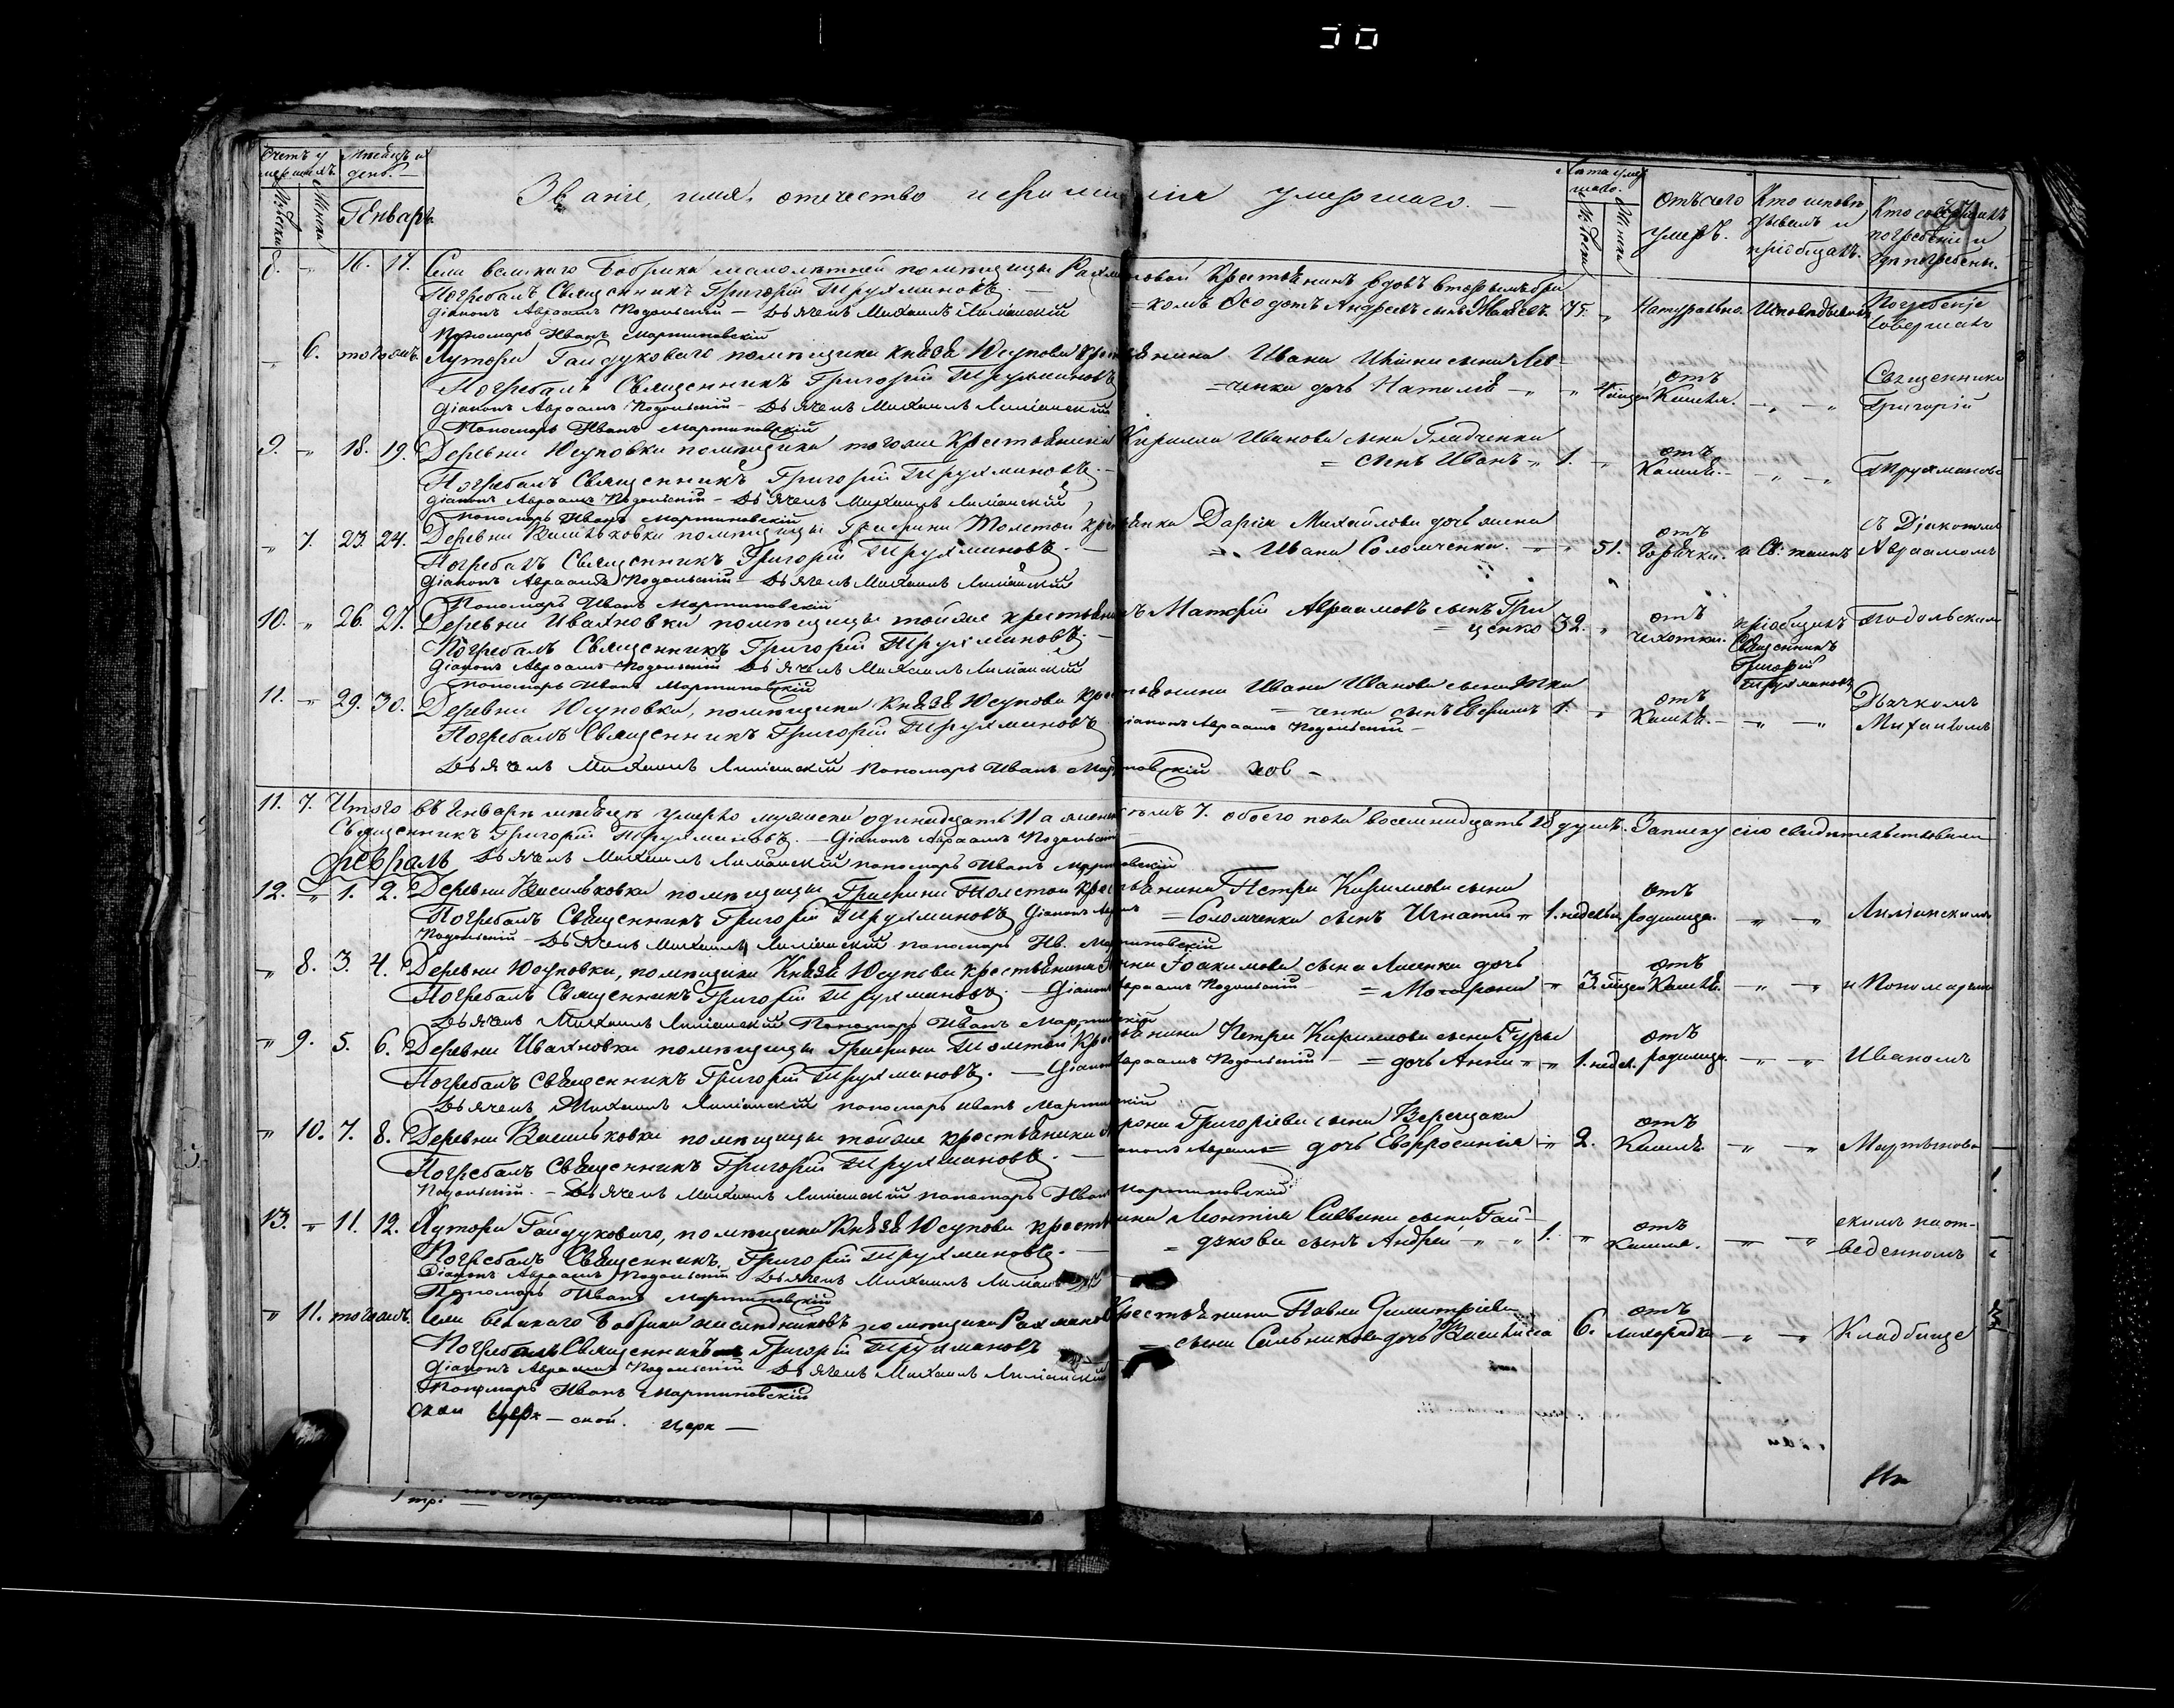 Счетъ умершихъ.
Мѣсяцъ и день.
Январь
Званіе, имя, отечество и фамилія умершаго. —
Лѣта умершаго.
Отъ чего умеръ.
Кто исповѣдывалъ и пріобщалъ.
Кто совершалъ погребеніе и гдѣ погребены.
8. „ 16. 17. Села великаго Бобрика малолѣтней помѣщицы Рахмановой крестьянинъ вдовъ вторымъ бра
=комъ Ѳеодотъ Андреевъ сынъ 75. „ Натурально. Исповѣдывалъ Погребеніе совершалъ
Погребалъ Священникъ Григорій Трухмановъ. —
Діаконъ Авраамъ Подольскій — Дьячекъ Михаилъ Лиманскій
Пономарь Иванъ Мартиновскій
„ 6. тогожъ. Хутора Гайдукового помѣщика Князя Юсупова крестьянина Ивана сына Лев-
=ченка дочь Наталія „ „ отъ Кашля. — „ — „ Священникъ Григорій
Погребалъ Священникъ Григорій Трухмановъ
Діаконъ Авраамъ Подольскій — Дьячекъ Михаилъ Лиманскій
Пономарь Иванъ Мартиновскій
9. „ 18. 19. Деревни Юсуповки помѣщика тогоже крестьянина Кирилла Иванова сына Гладченка
= сынъ Иванъ „ 1. „ отъ Кашля. — „ — „ Трухмановъ
Погребалъ Священникъ Григорій Трухмановъ. —
Діаконъ Авраамъ Подольскій — Дьячекъ Михаилъ Лиманскій
Пономарь Иванъ Мартиновскій
„ 7. 23. 24. Деревни Васильковки помѣщицы Графини Толстой крестьянка Дарія Михайлова дочь жена
= Ивана Соломченка. — „ 51. отъ Горячки. и Св. таинъ съ Діакономъ Авраамомъ
Погребалъ Священникъ Григорій Трухмановъ. —
Діаконъ Авраамъ Подольскій — Дьячекъ Михаилъ Лиманскій
Пономарь Иванъ Мартиновскій
10. „ 26. 27. Деревни Ивахновки помѣщицы тойже крестьянинъ Матфій Авраамовъ сынъ Гри
= ценко 32. „ отъ чахотки. пріобщалъ Священникъ Григорій Трухмановъ Подольскимъ
Погребалъ Священникъ Григорій Трухмановъ. —
Діаконъ Авраамъ Подольскій Дьячекъ Михаилъ Лиманскій
Пономарь Иванъ Мартиновскій
11. „ 29. 30. Деревни Юсуповки, помѣщика Князя Юсупова крестьянина Ивана Иванова сына Тка
= ченка сынъ Евфимъ 1. „ отъ Кашля. — „ — „ Дьячкомъ Михаиломъ
Погребалъ Священникъ Григорій Трухмановъ Діаконъ Авраамъ Подольскій —
Дьячекъ Михаилъ Лиманскій Пономарь Иванъ Мартиновскій
11. 7. Итого въ Январѣ мѣсяцѣ умерло мужеска одинадцать 11 а женска семь 7. обоего пола восемнадцать 18 душъ. Записку сію свидѣтельствовали
Священникъ Григорій Трухмановъ. — Діаконъ Авраамъ Подольскій
Февраль Дьячекъ Михаилъ Лиманскій пономарь Иванъ Мартиновскій
12. „ 1. 2. Деревни Васильковки помѣщицы Графини Толстой крестьянина Петра Кириллова сына
= Соломченка сынъ Игнатій „ 1. недели отъ родимца. „ „ Лиманскимъ
Погребалъ Священникъ Григорій Трухмановъ Діаконъ Авраамъ
Подольскій — Дьячекъ Михаилъ Лиманскій пономарь Ив. Мартиновскій
„ 8. 3. 4. Деревни Юсуповки, помѣщика Князя Юсупова крестьянина Іоакимова сына Лисенка дочь
= „ 3. отъ Кашля. — „ — „ и Пономаремъ
Погребалъ Священникъ Григорій Трухмановъ. — Діаконъ Авраамъ Подольскій
Дьячекъ Михаилъ Лиманскій Пономарь Иванъ Мартиновскій
„ 9. 5. 6. Деревни Ивахновки помѣщицы Графини Толстой крестьянина Петра Кириллова сына Гуры
= дочь Анна „ „ 1. недел. отъ родимца. — „ „ Иваномъ
Погребалъ Священникъ Григорій Трухмановъ. — Діаконъ Авраамъ Подольскій —
Дьячекъ Михаилъ Лиманскій пономарь Иванъ Мартиновскій
„ 10. 7. 8. Деревни Васильковки помѣщицы тойже крестьянина Григоріева сына Верещаки
= дочь Евфросинія „ 2. отъ Кашля. „ „ Мартынов
Погребалъ Священникъ Григорій Трухмановъ. — Діаконъ Авраамъ
Подольскій. — Дьячекъ Михаилъ Лиманскій пономарь Иванъ Мартиновскій
13. „ 11. 12. Хутора Гайдукового, помѣщика Князя Юсупова крестьянина Леонтія Саввина сына Гай-
= дукова сынъ Андрей — „ „ 1. „ отъ Кашля. „ „ скимъ на от-веденномъ
Погребалъ Священникъ Григорій Трухмановъ. —
Діаконъ Авраамъ Подольскій Дьячекъ Михаилъ Лиманскій
Пономарь Иванъ Мартиновскій
„ 11. тогожъ. Села великаго Бобрика наслѣдниковъ помѣщика Рахманова Крестьянина Павла Димитріева
= сына Сальникова дочь Василисса 6. отъ лихорадки — „ — „ Кладбище
Погребалъ Священникъ Григорій Трухмановъ
Діаконъ Авраамъ Подольскій Дьячекъ Михаилъ Лиманскій
Пономарь Иванъ Мартиновскій
ской. церк —